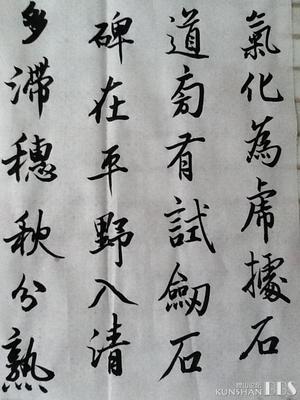 氣化為虎據石
道旁有試劔石
碑在平野入清
多滯穗秋分熟
KUNSHAN BBS